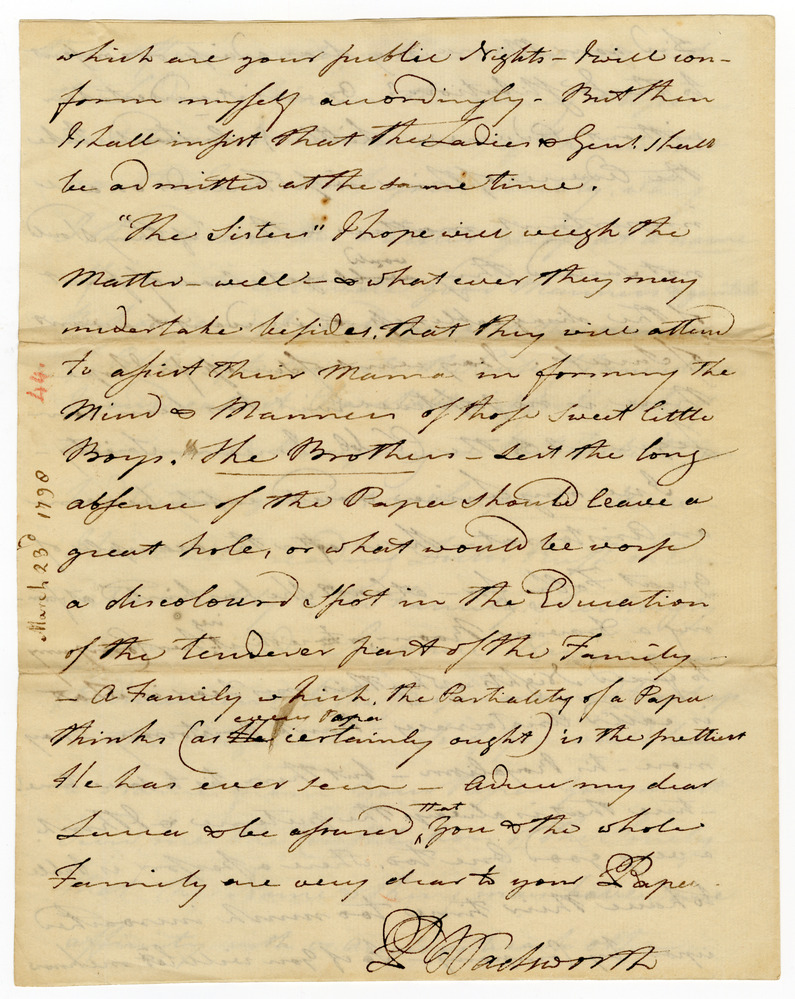 which are your public Nights - I will con-
form myself accordingly - But then
I shall insist that the Ladies & Gent. shall
be admitted at the same time.
"The Sisters" I hope will wiegh the
Matter - well - & what ever they may
undertake besides, that they will attend
to assist their Mama in forming the
Mind & Manners of those sweet little
Boys. "The Brothers - Lest the long
absence of the Papa should leave a
great hole, or what would be worse
a discolourd spot in the Education
of the tenderer part of the Family -
- A Family which, the Partiality of a Papa
every Papa
thinks (as He certainly ought) is the prettiest
He has ever seen - adieu my dear
that
Lucia & be assured, You & the whole
Family are very dear to your Papa.
P Wadsworth
March 23d 1798
44.